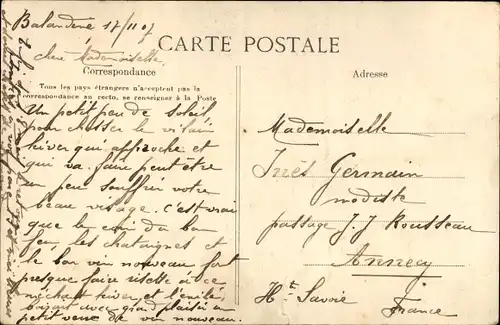 Balandene 17/11 07
CARTE POSTALE
Chère Mademoiselle
Correspondance
Adresse
Tous les pays étrangers n'acceptent pas la
correspondance au recto, se renseigner à la Poste
Un petit peu de soleil
pour chasser le vilain
hiver qui approche et
qui va faire peut être
un peu souffrir votre
beau visage. C'est vrai
que le coin du bon
feu, les chataignes et
le bon vin nouveau font
presque faire risette à ce
méchant hiver, et
buvant avec grand plaisir un
petit verre de vin nouveau.
Mademoiselle
Inès Germain
modiste
passage J. J Rousseau
Annecy
Hte Savoie
France